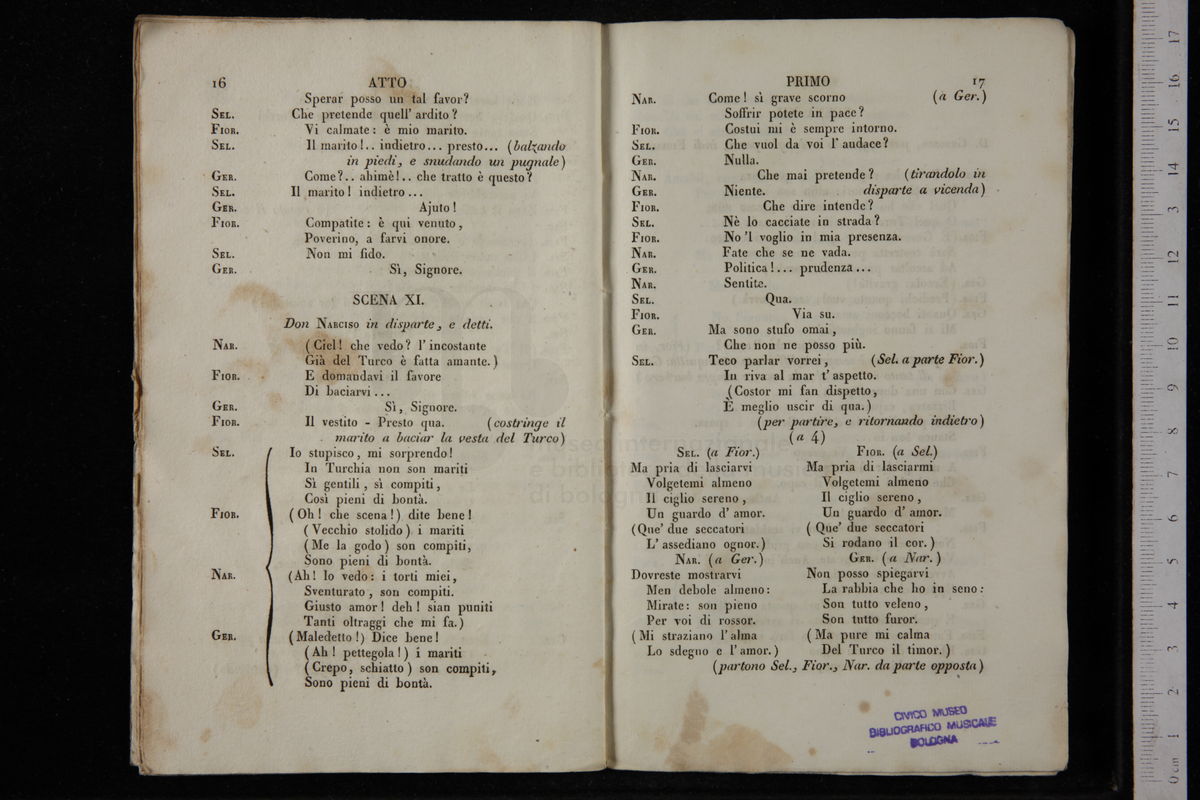 16 ATTO
Sperar posso un tal favor?
SEL. Che pretende quell' ardito?
FIOR. Vi calmate: è mio marito.
SEL. Il marito!.. indietro... presto... (balzando
in piedi, e snudando un pugnale)
GER. Come?.. ahimè!.. che tratto è questo?
SEL. Il marito! indietro...
GER. Ajuto!
FIOR. Compatite: è qui venuto,
Poverino, a farvi onore.
SEL. Non mi fido.
GER. Sì, Signore.
SCENA XI.
Don NARCISO in disparte, e detti.
NAR. (Ciel! che vedo? l' incostante
Già del Turco è fatta amante.)
FIOR. E domandavi il favore
Di baciarvi...
GER. Sì, Signore.
FIOR. Il vestito - Presto qua. (costringe il
marito a baciar la vesta del Turco)
SEL. Io stupisco, mi sorprendo!
In Turchia non son mariti
Sì gentili, sì compiti,
Così pieni di bontà.
FIOR. (Oh! che scena!) dite bene!
(Vecchio stolido) i mariti
(Me la godo) son compiti,
Sono pieni di bontà.
NAR. (Ah! lo vedo: i torti miei,
Sventurato, son compiti.
Giusto amor! deh! sian puniti
Tanti oltraggi che mi fa.)
GER. (Maledetto!) Dice bene!
(Ah! pettegola!) i mariti
(Crepo, schiatto) son compiti,
Sono pieni di bontà.
PRIMO 17
NAR. Come! sì grave scorno (a Ger.)
Soffrir potete in pace?
FIOR. Costui mi è sempre intorno.
SEL. Che vuol da voi l' audace?
GER. Nulla.
NAR. Che mai pretende? (tirandolo in
GER. Niente. disparte a vicenda)
FIOR. Che dire intende?
SEL. Nè lo cacciate in strada?
FIOR. No 'l voglio in mia presenza.
NAR. Fate che se ne vada.
GER. Politica!... prudenza...
NAR. Sentite.
SEL. Qua.
FIOR. Via su.
GER. Ma sono stufo omai,
Che non ne posso più.
SEL. Teco parlar vorrei, (Sel. a parte Fior.)
In riva al mar t' aspetto.
(Costor mi fan dispetto,
È meglio uscir di qua.)
(per partire, e ritornando indietro)
(a 4)
SEL. (a Fior.) FIOR. (a Sel.)
Ma pria di lasciarvi Ma pria di lasciarmi
Volgetemi almeno Volgetemi almeno
Il ciglio sereno, Il ciglio sereno,
Un guardo d' amor. Un guardo d' amor.
(Que' due seccatori (Que' due seccatori
L' assediano ognor.) Si rodano il cor.)
NAR. (a Ger.) GER. (a Nar.)
Dovreste mostrarvi Non posso spiegarvi
Men debole almeno: La rabbia che ho in seno:
Mirate: son pieno Son tutto veleno,
Per voi di rossor. Son tutto furor.
(Mi straziano l' alma (Ma pure mi calma
Lo sdegno e l' amor.) Del Turco il timor.)
(partono Sel., Fior., Nar. da parte opposta)
CIVICO MUSEO
BIBLIOGRAFICO MUSICALE
BOLOGNA
museo internazionale
e biblioteca della musica
di bologna
0 cm 1 2 3 4 5 6 7 8 9 10 11 12 13 14 15 16 17